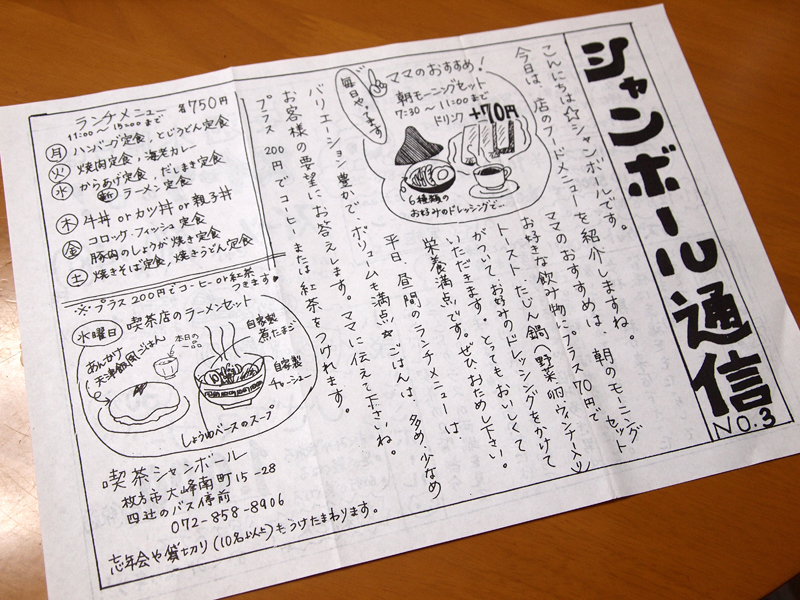 シャンボール通信
NO.3
こんにちは☆シャンボールです。
今日は、店のフードメニューを紹介しますね。
ママのおすすめは、朝のモーニングセット
お好きな飲み物にプラス70円で
トースト、たじん鍋(野菜、卵、ウィンナー入り)
がついて、お好みのドレッシングをかけて
いただきます。とってもおいしくて、
栄養満点です。ぜひおためし下さい。
平日、昼間のランチメニューは、
バリエーション豊かで、ボリュームも満点☆ごはんは、多め、少なめ
お客様の要望にお答えします。ママに伝えて下さいね。
プラス200円でコーヒーまたは紅茶をつけれます。
ママのおすすめ!
毎日やってます
朝モーニングセット
7:30〜11:00まで
ドリンク +70円
6種類の
お好みのドレッシングで…
ランチメニュー 各750円
11:00〜15:00まで
月 ハンバーグ定食、とじうどん定食
火 焼肉定食・海老カレー
水 からあげ定食、だしまき定食
新 ラーメン定食
木 牛丼orカツ丼or親子丼
金 コロッケ・フィッシュ定食
豚肉のしょうが焼き定食
土 焼きそば定食、焼きうどん定食
※プラス200円でコーヒーor紅茶
つきます♥
水曜日 喫茶店のラーメンセット
あんかけ
天津飯風ごはん
本日の
一品
自家製
煮たまご
自家製
チャーシュー
しょうゆベースのスープ
喫茶シャンボール
枚方市大峰南町15-28
四辻のバス停前
072-858-8906
忘年会や貸切り(10名以上)もうけたまわります。